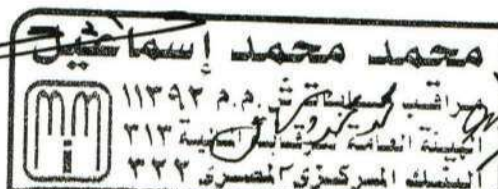 محمد محمد إسماعيل
مراقب حسابات س.م.م ١١٣٩٢
الهيئة العامة للرقابة المالية ٣١٣
البنك المركزي المصري ٣٢٢